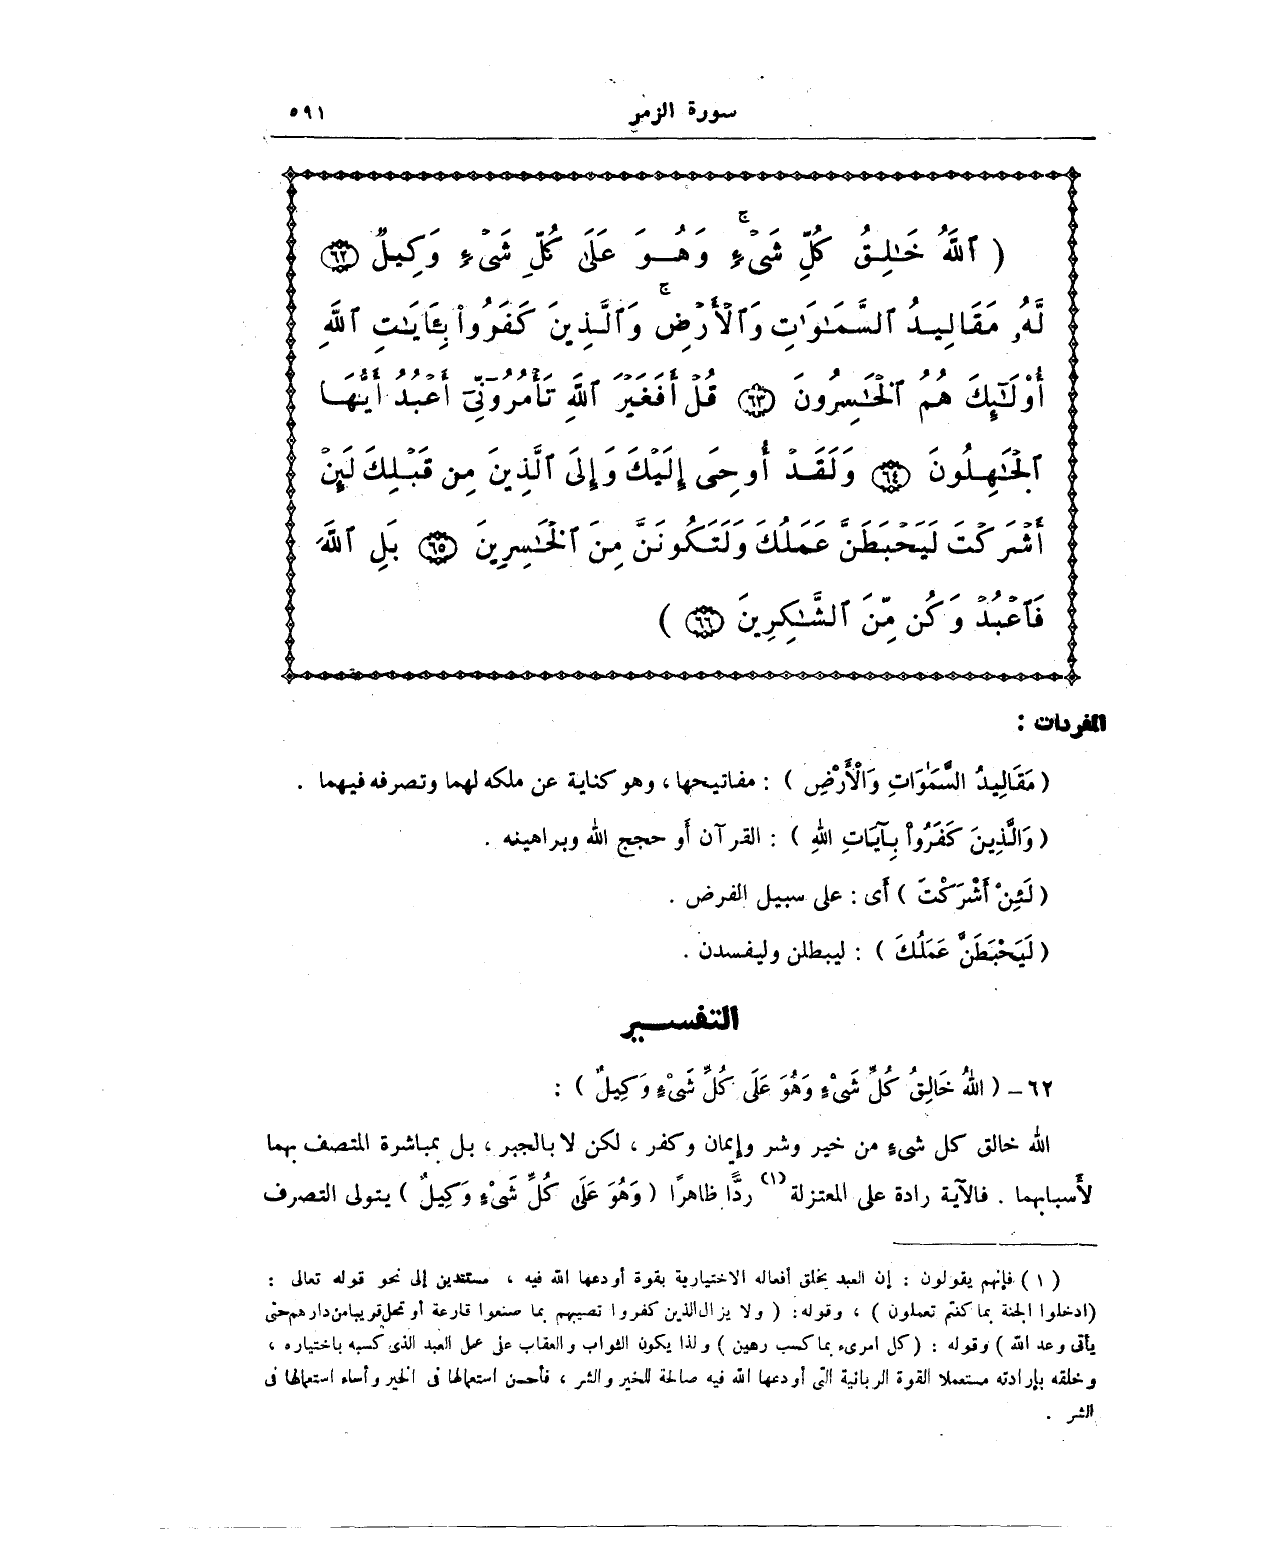 سورة الزمر ٥٩١
( ٱللَّهُ خَـٰلِقُ كُلِّ شَىْءٍۢ ۖ وَهُـوَ عَلَىٰ كُلِّ شَىْءٍ وَكِيلٌ ﴿٦٢﴾
لَّهُۥ مَقَالِيدُ ٱلسَّمَـٰوَٰتِ وَٱلْأَرْضِ ۗ وَٱلَّذِينَ كَفَرُوا۟ بِـَٔايَـٰتِ ٱللَّهِ
أُو۟لَـٰٓئِكَ هُمُ ٱلْخَـٰسِرُونَ ﴿٦٣﴾ قُلْ أَفَغَيْرَ ٱللَّهِ تَأْمُرُوٓنِّىٓ أَعْبُدُ أَيُّهَـا
ٱلْجَـٰهِلُونَ ﴿٦٤﴾ وَلَقَـدْ أُوحِىَ إِلَيْكَ وَإِلَى ٱلَّذِينَ مِن قَبْلِكَ لَئِنْ
أَشْرَكْتَ لَيَحْبَطَنَّ عَمَلُكَ وَلَتَكُونَنَّ مِنَ ٱلْخَـٰسِرِينَ ﴿٦٥﴾ بَلِ ٱللَّهَ
فَٱعْبُدْ وَكُن مِّنَ ٱلشَّـٰكِرِينَ ﴿٦٦﴾ )
المفردات :
( مَقَالِيدُ السَّمَٰوَاتِ وَالْأَرْضِ ) : مفاتيحها ، وهو كناية عن ملكه لهما وتصرفه فيهما .
( وَالَّذِينَ كَفَرُوا۟ بِآيَاتِ اللهِ ) : القرآن أو حجج الله وبراهينه .
( لَئِنْ أَشْرَكْتَ ) أى : على سبيل الفرض .
( لَيَحْبَطَنَّ عَمَلُكَ ) : ليبطلن وليفسدن .
التفسـير
٦٢ – ( اللهُ خَالِقُ كُلِّ شَىْءٍ وَهُوَ عَلَى كُلِّ شَىْءٍ وَكِيلٌ ) :
الله خالق كل شىء من خير وشر وإيمان وكفر ، لكن لا بالجبر ، بل بمباشرة المتصف بهما
لأسبابهما . فالآية رادة على المعتزلة (١) ردًّا ظاهرًا ( وَهُوَ عَلَى كُلِّ شَىْءٍ وَكِيلٌ ) يتولى التصرف
( ١ ) فإنهم يقولون : إن العبد يخلق أفعاله الاختيارية بقوة أودعها الله فيه ، مستندين إلى نحو قوله تعالى :
(ادخلوا الجنة بما كنتم تعملون ) ، وقوله: ( ولا يزال الذين كفروا تصيبهم بما صنعوا قارعة أو تحل قريبا من دارهم حتى
يأتى وعد الله ) وقوله : ( كل امرىء بما كسب رهين ) ولذا يكون الثواب والعقاب على عمل العبد الذى كسبه باختياره ،
وخلقه بإرادته مستعملا القوة الربانية التى أودعها الله فيه صالحة للخير والشر ، فأحسن استعمالها فى الخير وأساء استعمالها فى
الشر .